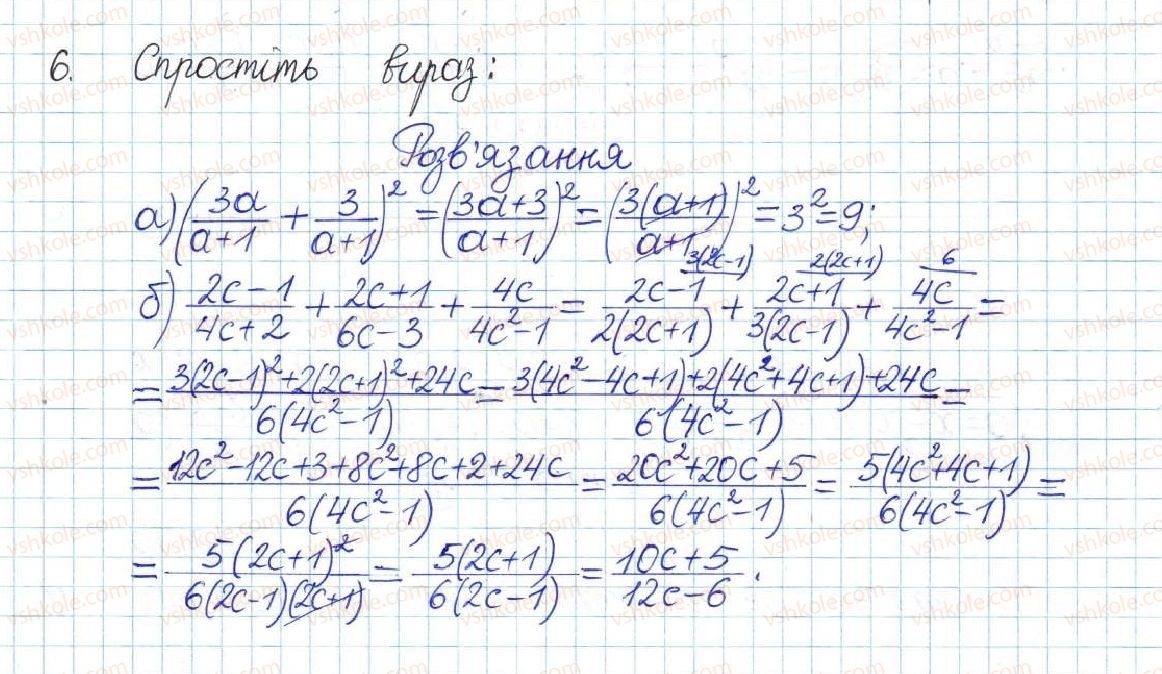 6. Спростіть вираз:
Розв'язання
а) (3a/(a+1) + 3/(a+1))² = ((3a+3)/(a+1))² = (3(a+1)/(a+1))² = 3² = 9;
б) (2c-1)/(4c+2) + (2c+1)/(6c-3) + 4c/(4c²-1) = (2c-1)/(2(2c+1)) ^{3(2c-1)} + (2c+1)/(3(2c-1)) ^{2(2c+1)} + 4c/(4c²-1) ^{6} =
= (3(2c-1)²+2(2c+1)²+24c)/(6(4c²-1)) = (3(4c²-4c+1)+2(4c²+4c+1)+24c)/(6(4c²-1)) =
= (12c²-12c+3+8c²+8c+2+24c)/(6(4c²-1)) = (20c²+20c+5)/(6(4c²-1)) = (5(4c²+4c+1))/(6(4c²-1)) =
= (5(2c+1)²)/(6(2c-1)(2c+1)) = (5(2c+1))/(6(2c-1)) = (10c+5)/(12c-6).
vshkole.com